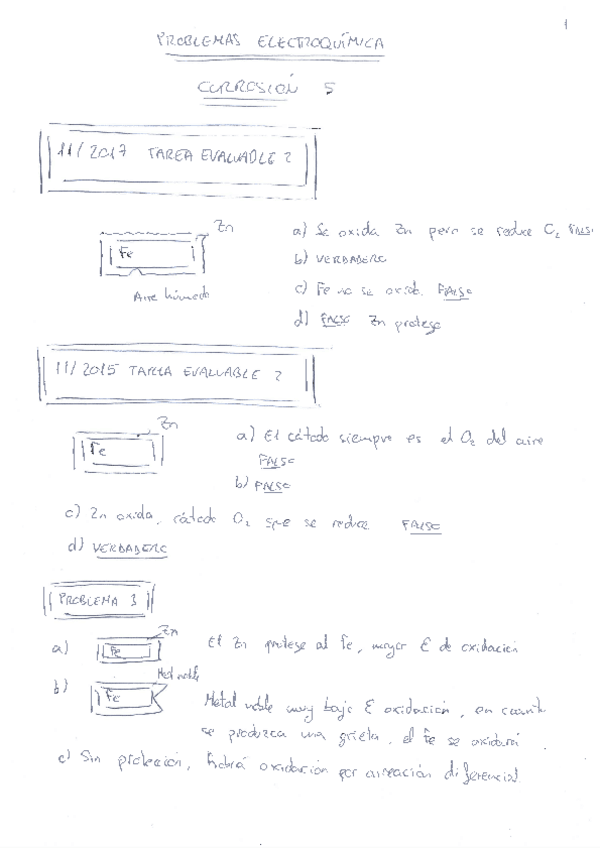 1
PROBLEMAS ELECTROQUÍMICA
CORROSIÓN 5
11/2017 TAREA EVALUABLE 2
Zn
Fe
Aire húmedo
a) Se oxida Zn pero se reduce O2 FALSO
b) VERDADERO
c) Fe no se oxida. FALSO
d) FALSO Zn protege
11/2015 TAREA EVALUABLE 2
Zn
Fe
a) El cátodo siempre es el O2 del aire
FALSO
b) FALSO
c) Zn oxida, cátodo O2 que se reduce FALSO
d) VERDADERO
PROBLEMA 3
a) Fe Zn El Zn protege al Fe, mayor E de oxidación
b) Fe Met noble
Metal noble muy bajo E oxidación, en cuanto
se produzca una grieta, el Fe se oxidará.
c) Sin protección, habrá oxidación por aireación diferencial